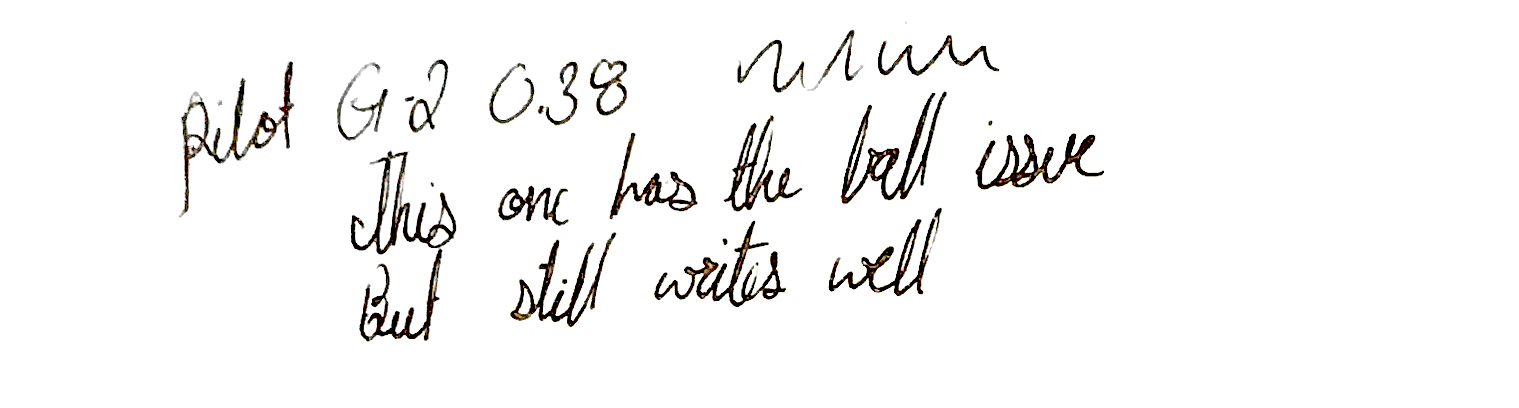 Pilot G-2 0.38
This one has the ball issue
But still writes well